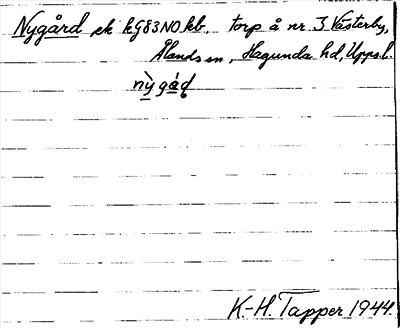 Nygård ek kG83NO kb. torp å nr 3 Västerby,
Ålands sn, Hagunda hd, Upps.l.
nỳgáḍ
K.-H. Tapper 1944.